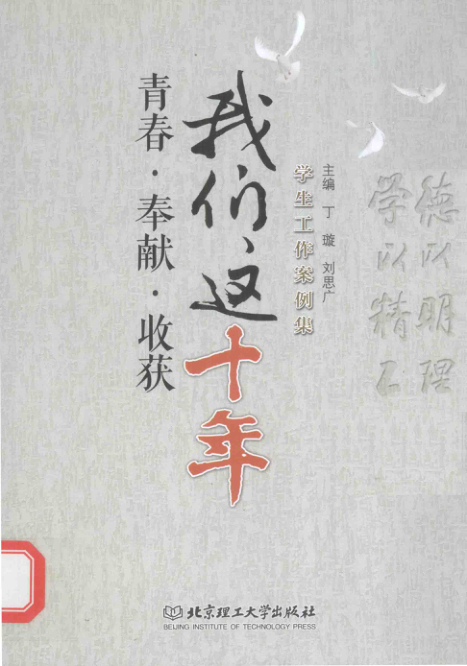 德以明理
学以精工
主编 丁璇 刘思广
学生工作案例集
我们这十年
青春·奉献·收获
北京理工大学出版社
BEIJING INSTITUTE OF TECHNOLOGY PRESS